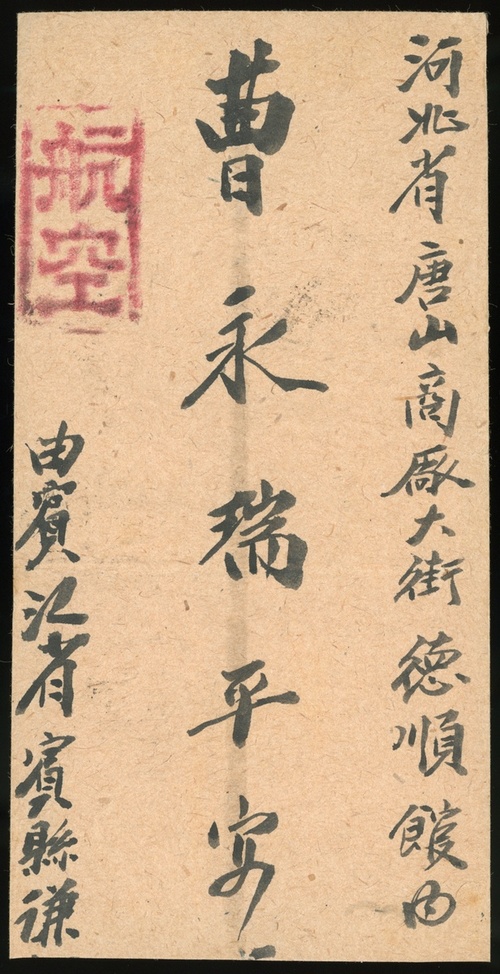 河北省唐山商厰大街德順館內
曹永瑞平安
航空
由賓江省賓縣謙